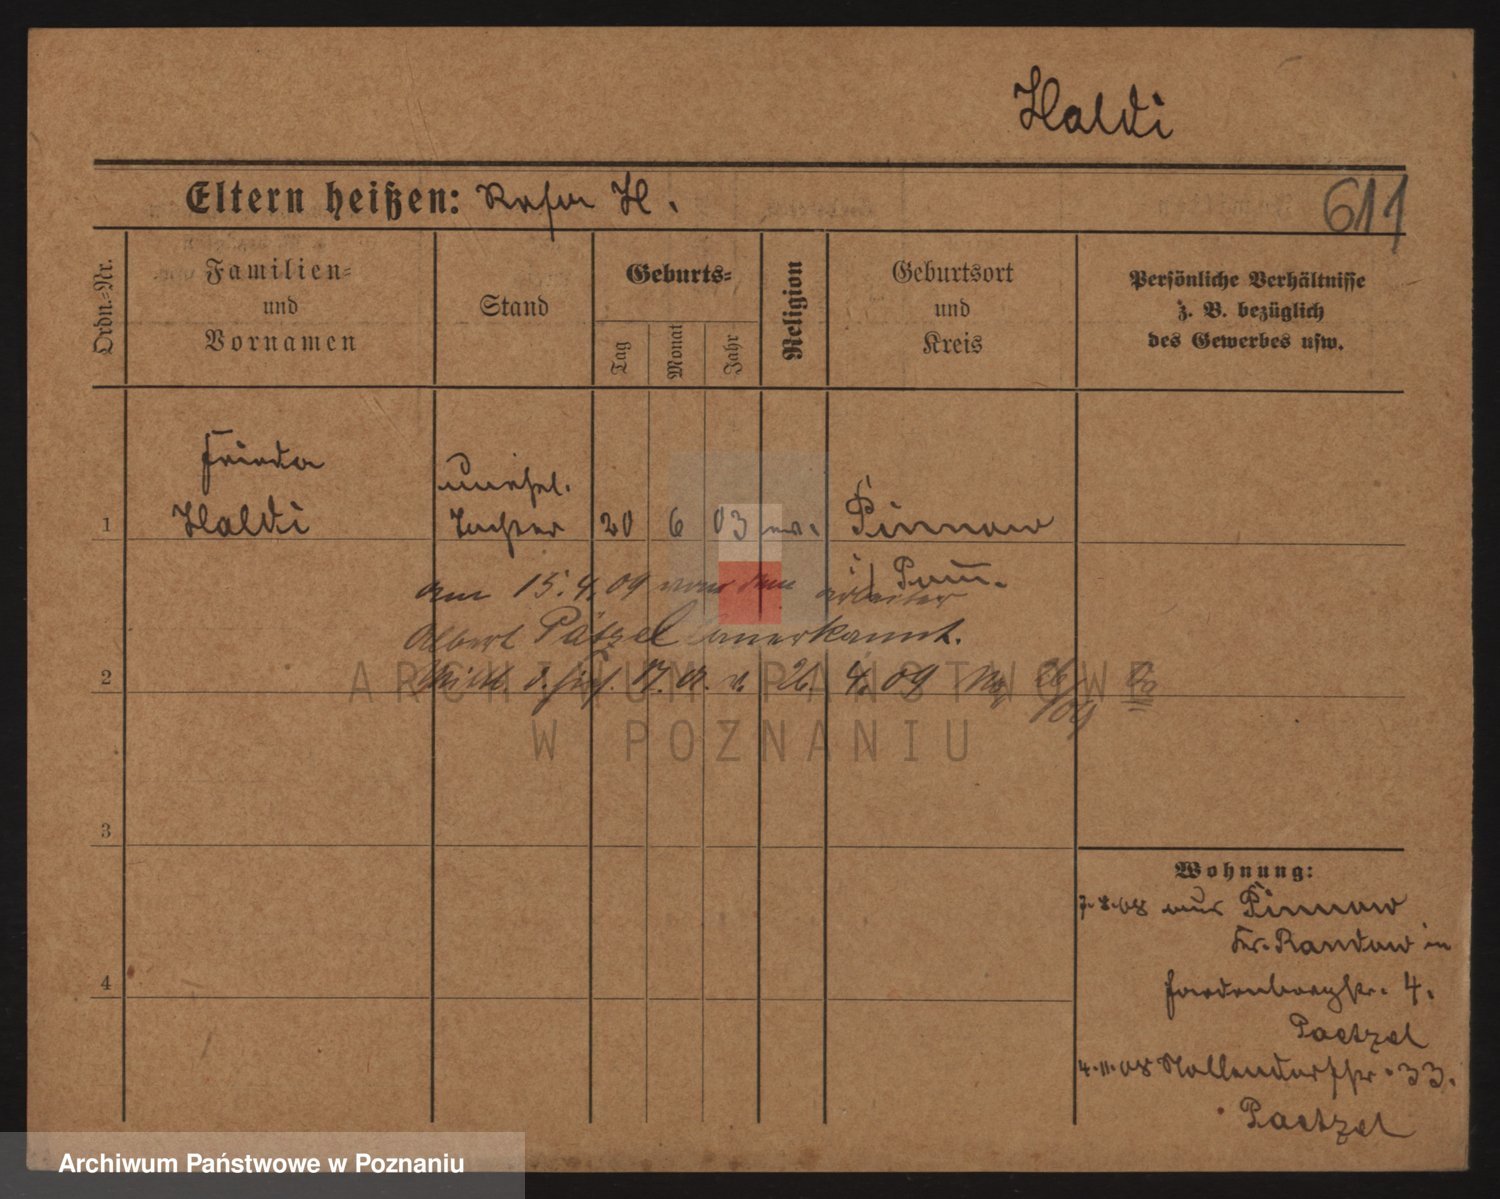 Haldi
Eltern heißen: H.
611
Ordn.-Nr.
Familien-
und
Vornamen
Stand
Geburts-
Tag
Monat
Jahr
Religion
Geburtsort
und
Kreis
Persönliche Verhältnisse
z. B. bezüglich
des Gewerbes usw.
Frieda
unehel.
1 Haldi Tochter 20 6 03 ev. Pinnow
i/ Pom.
am 15.4.09 von dem Arbeiter
Albert Pätzel anerkannt.
26. 4. 09
2
ARCHIWUM PAŃSTWOWE
W POZNANIU
3
4
Wohnung:
aus Pinnow
Kr. Randow in
4.
Paetzel
4.11.08 Nollendorfstr. 33.
Paetzel
Archiwum Państwowe w Poznaniu